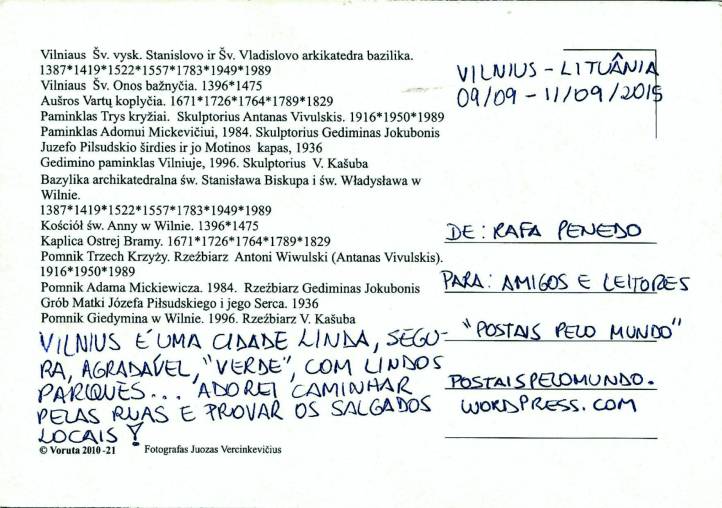 Vilniaus Šv. vysk. Stanislovo ir Šv. Vladislovo arkikatedra bazilika.
1387*1419*1522*1557*1783*1949*1989
Vilniaus Šv. Onos bažnyčia. 1396*1475
Aušros Vartų koplyčia. 1671*1726*1764*1789*1829
Paminklas Trys kryžiai. Skulptorius Antanas Vivulskis. 1916*1950*1989
Paminklas Adomui Mickevičiui, 1984. Skulptorius Gediminas Jokubonis
Juzefo Pilsudskio širdies ir jo Motinos kapas, 1936
Gedimino paminklas Vilniuje, 1996. Skulptorius V. Kašuba
Bazylika archikatedralna św. Stanisława Biskupa i św. Władysława w
Wilnie.
1387*1419*1522*1557*1783*1949*1989
Kościół św. Anny w Wilnie. 1396*1475
Kaplica Ostrej Bramy. 1671*1726*1764*1789*1829
Pomnik Trzech Krzyży. Rzeźbiarz Antoni Wiwulski (Antanas Vivulskis).
1916*1950*1989
Pomnik Adama Mickiewicza. 1984. Rzeźbiarz Gediminas Jokubonis
Grób Matki Józefa Piłsudskiego i jego Serca. 1936
Pomnik Giedymina w Wilnie. 1996. Rzeźbiarz V. Kašuba
VILNIUS É UMA CIDADE LINDA, SEGU-
RA, AGRADÁVEL, "VERDE", COM LINDOS
PARQUES... ADOREI CAMINHAR
PELAS RUAS E PROVAR OS SALGADOS
LOCAIS!
© Voruta 2010-21 Fotografas Juozas Vercinkevičius
VILNIUS - LITUÂNIA
09/09 - 11/09/2015
DE: RAFA PENEDO
PARA: AMIGOS E LEITORES
"POSTAIS PELO MUNDO"
POSTAISPELOMUNDO.
WORDPRESS.COM